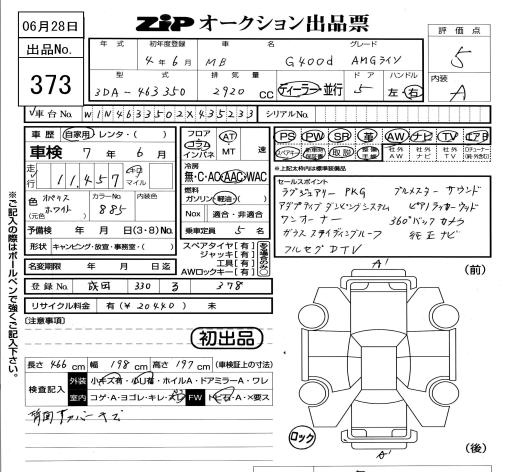 06月28日
ZIP オークション出品票
出品No.
373
評価点
5
内装
A
年式 初年度登録 車名 グレード
4年6月 MB G400d AMGライン
型式 排気量 ドア ハンドル
3DA-463350 2920 cc ディーラー 並行 5 左・右
車台No. W1N4633502X435233 シリアルNo.
車歴 自家用・レンタ・( )
車検 7年 6月
走行 11,457 キロ マイル
色 ポラリスホワイト (元色) カラーNo. 885 内装色
予備検 年 月 日(3・8)No.
形状 キャンピング・放宣・事務室・( )
名変期限 年 月 日迄
フロア コラム インパネ AT MT 速
冷房 無・C・AC・AAC・WAC
燃料 ガソリン・軽油・( )
Nox 適合・非適合
乗車定員 5 名
スペアタイヤ[有]
ジャッキ[有]
工具[有]
AWロックキー[有]
PS PW SR 革 AW ナビ TV エアB
スペアキー 新車時保証書 取説 社外AW 社外ナビ 社外TV
※上記太枠内は標準装備品
セールスポイント
ラグジュアリー PKG ブルメスター サウンド
アダプティブ ダンピングシステム ピアノラッカーウッド
ワンオーナー 360°バックカメラ
ガラス スライディングルーフ 純正ナビ
フルセグDTV
登録No. 成田 330 る 378
リサイクル料金 有(¥20440) 未
(注意事項)
初出品
長さ 466 cm 幅 198 cm 高さ 197 cm (車検証上の寸法)
検査記入 外装 小キズ有・小凹有・ホイルA・ドアミラーA・ワレ
室内 コゲ・A・ヨゴレ・キレ・ FW トビ石・A・×要ス
※ご記入の際はボールペンで強くご記入下さい。
(前)
A'
ロック
A'
(後)